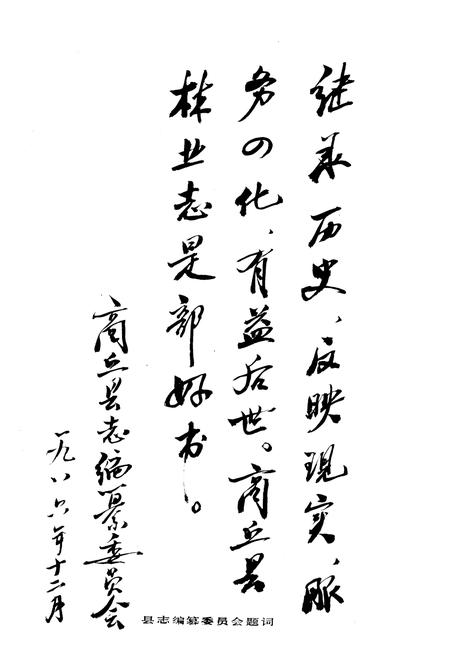 继承历史，反映现实，服
务四化，有益后世。商丘县
林业志是部好书。
商丘县志编纂委员会
一九八六年十二月
县志编纂委员会题词